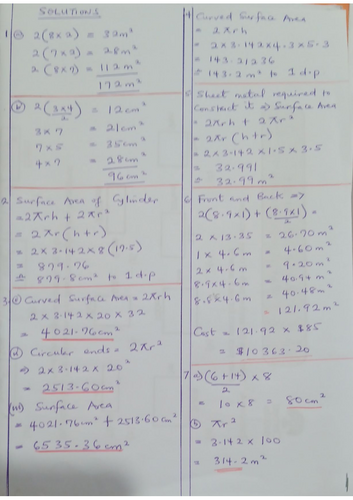 SOLUTIONS
1 (a) 2(8x2) = 32m²
2(7x2) = 28m²
2(8x7) = 112m²
172m²
(b) 2(3x4)/2 = 12cm²
3x7 = 21cm²
7x5 = 35cm²
4x7 = 28cm²
96cm²
2. Surface Area of Cylinder
= 2πrh + 2πr²
= 2πr(h+r)
= 2x3.142x8(17.5)
= 879.76
≏ 879.8cm² to 1 d.p
3. (i) Curved Surface Area = 2πrh
2x3.142x20x32
= 4021.76cm²
(ii) Circular ends = 2πr²
⇒ 2x3.142x20²
= 2513.60cm²
(iii) Surface Area
= 4021.76cm² + 2513.60cm²
= 6535.36cm²
4 Curved Surface Area
= 2πrh
= 2x3.142x4.3x5.3
= 143.21236
= 143.2m² to 1 d.p
5 Sheet metal required to
Construct it ⇒ Surface Area
= 2πrh + 2πr²
= 2πr(h+r)
= 2x3.142x1.5x3.5
= 32.991
= 32.99m²
6 Front and Back ⇒
2(8.9x1) + (8.9x1)/2 =
2 x 13.35 = 26.70m²
1 x 4.6m = 4.60m²
2 x 4.6m = 9.20m²
8.9x4.6m = 40.94m²
8.8x4.6m = 40.48m²
= 121.92m²
Cost = 121.92 x $85
= $10363.20
7 a) (6+14)/2 x 8
= 10x8 = 80cm²
(b) πr²
= 3.142x100
= 314.2m²